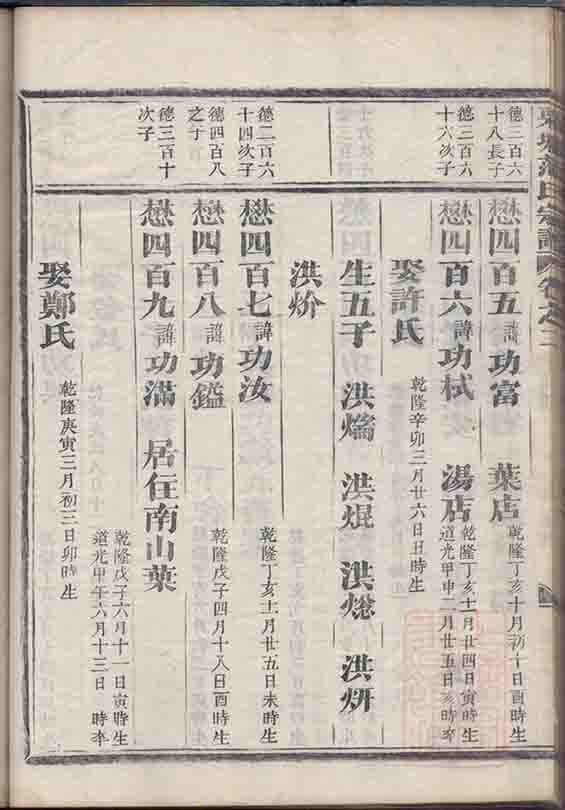 德三百六
十八長子
懋四百五諱功富 葉店
乾隆丁亥十月初十日酉時生
德三百六
十六次子
懋四百六諱功栻 湯店
乾隆丁亥十一月廿四日寅時生
道光甲申二月廿五日亥時卒
娶許氏
乾隆辛卯三月廿六日丑時生
生五子 洪爚 洪焜 洪熜 洪妍
洪炌
德二百六
十四次子
懋四百七諱功汝
乾隆丁亥十一月廿五日未時生
德四百八
之子
懋四百八諱功鑑
乾隆戊子四月十八日酉時生
德三百十
次子
懋四百九諱功滿 居住南山葉
乾隆戊子六月十一日寅時生
道光甲午六月十三日 時卒
娶鄭氏
乾隆庚寅三月初三日卯時生